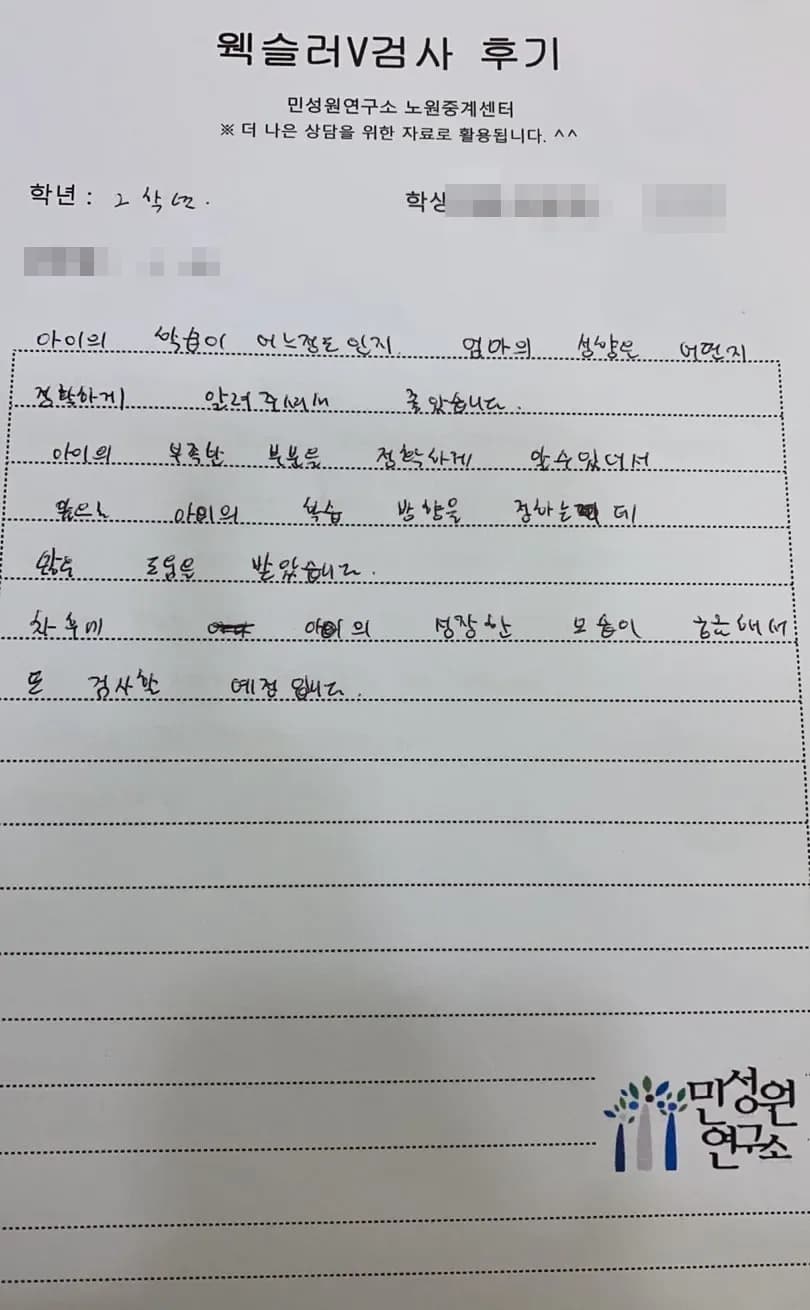 웩슬러V검사 후기
민성원연구소 노원중계센터
※ 더 나은 상담을 위한 자료로 활용됩니다. ^^
학년 : 2학년.
학생
아이의 학습이 어느정도인지. 엄마의 성향은 어떤지
정확하게 알려주셔서 좋았습니다.
아이의 부족한 부분을 정확하게 알수있어서
아이의 학습 방향을 정하는 데
도움은 받았습니다.
차후에 아이의 성장한 모습이 궁금해서
또 검사할 예정입니다.
민성원
연구소